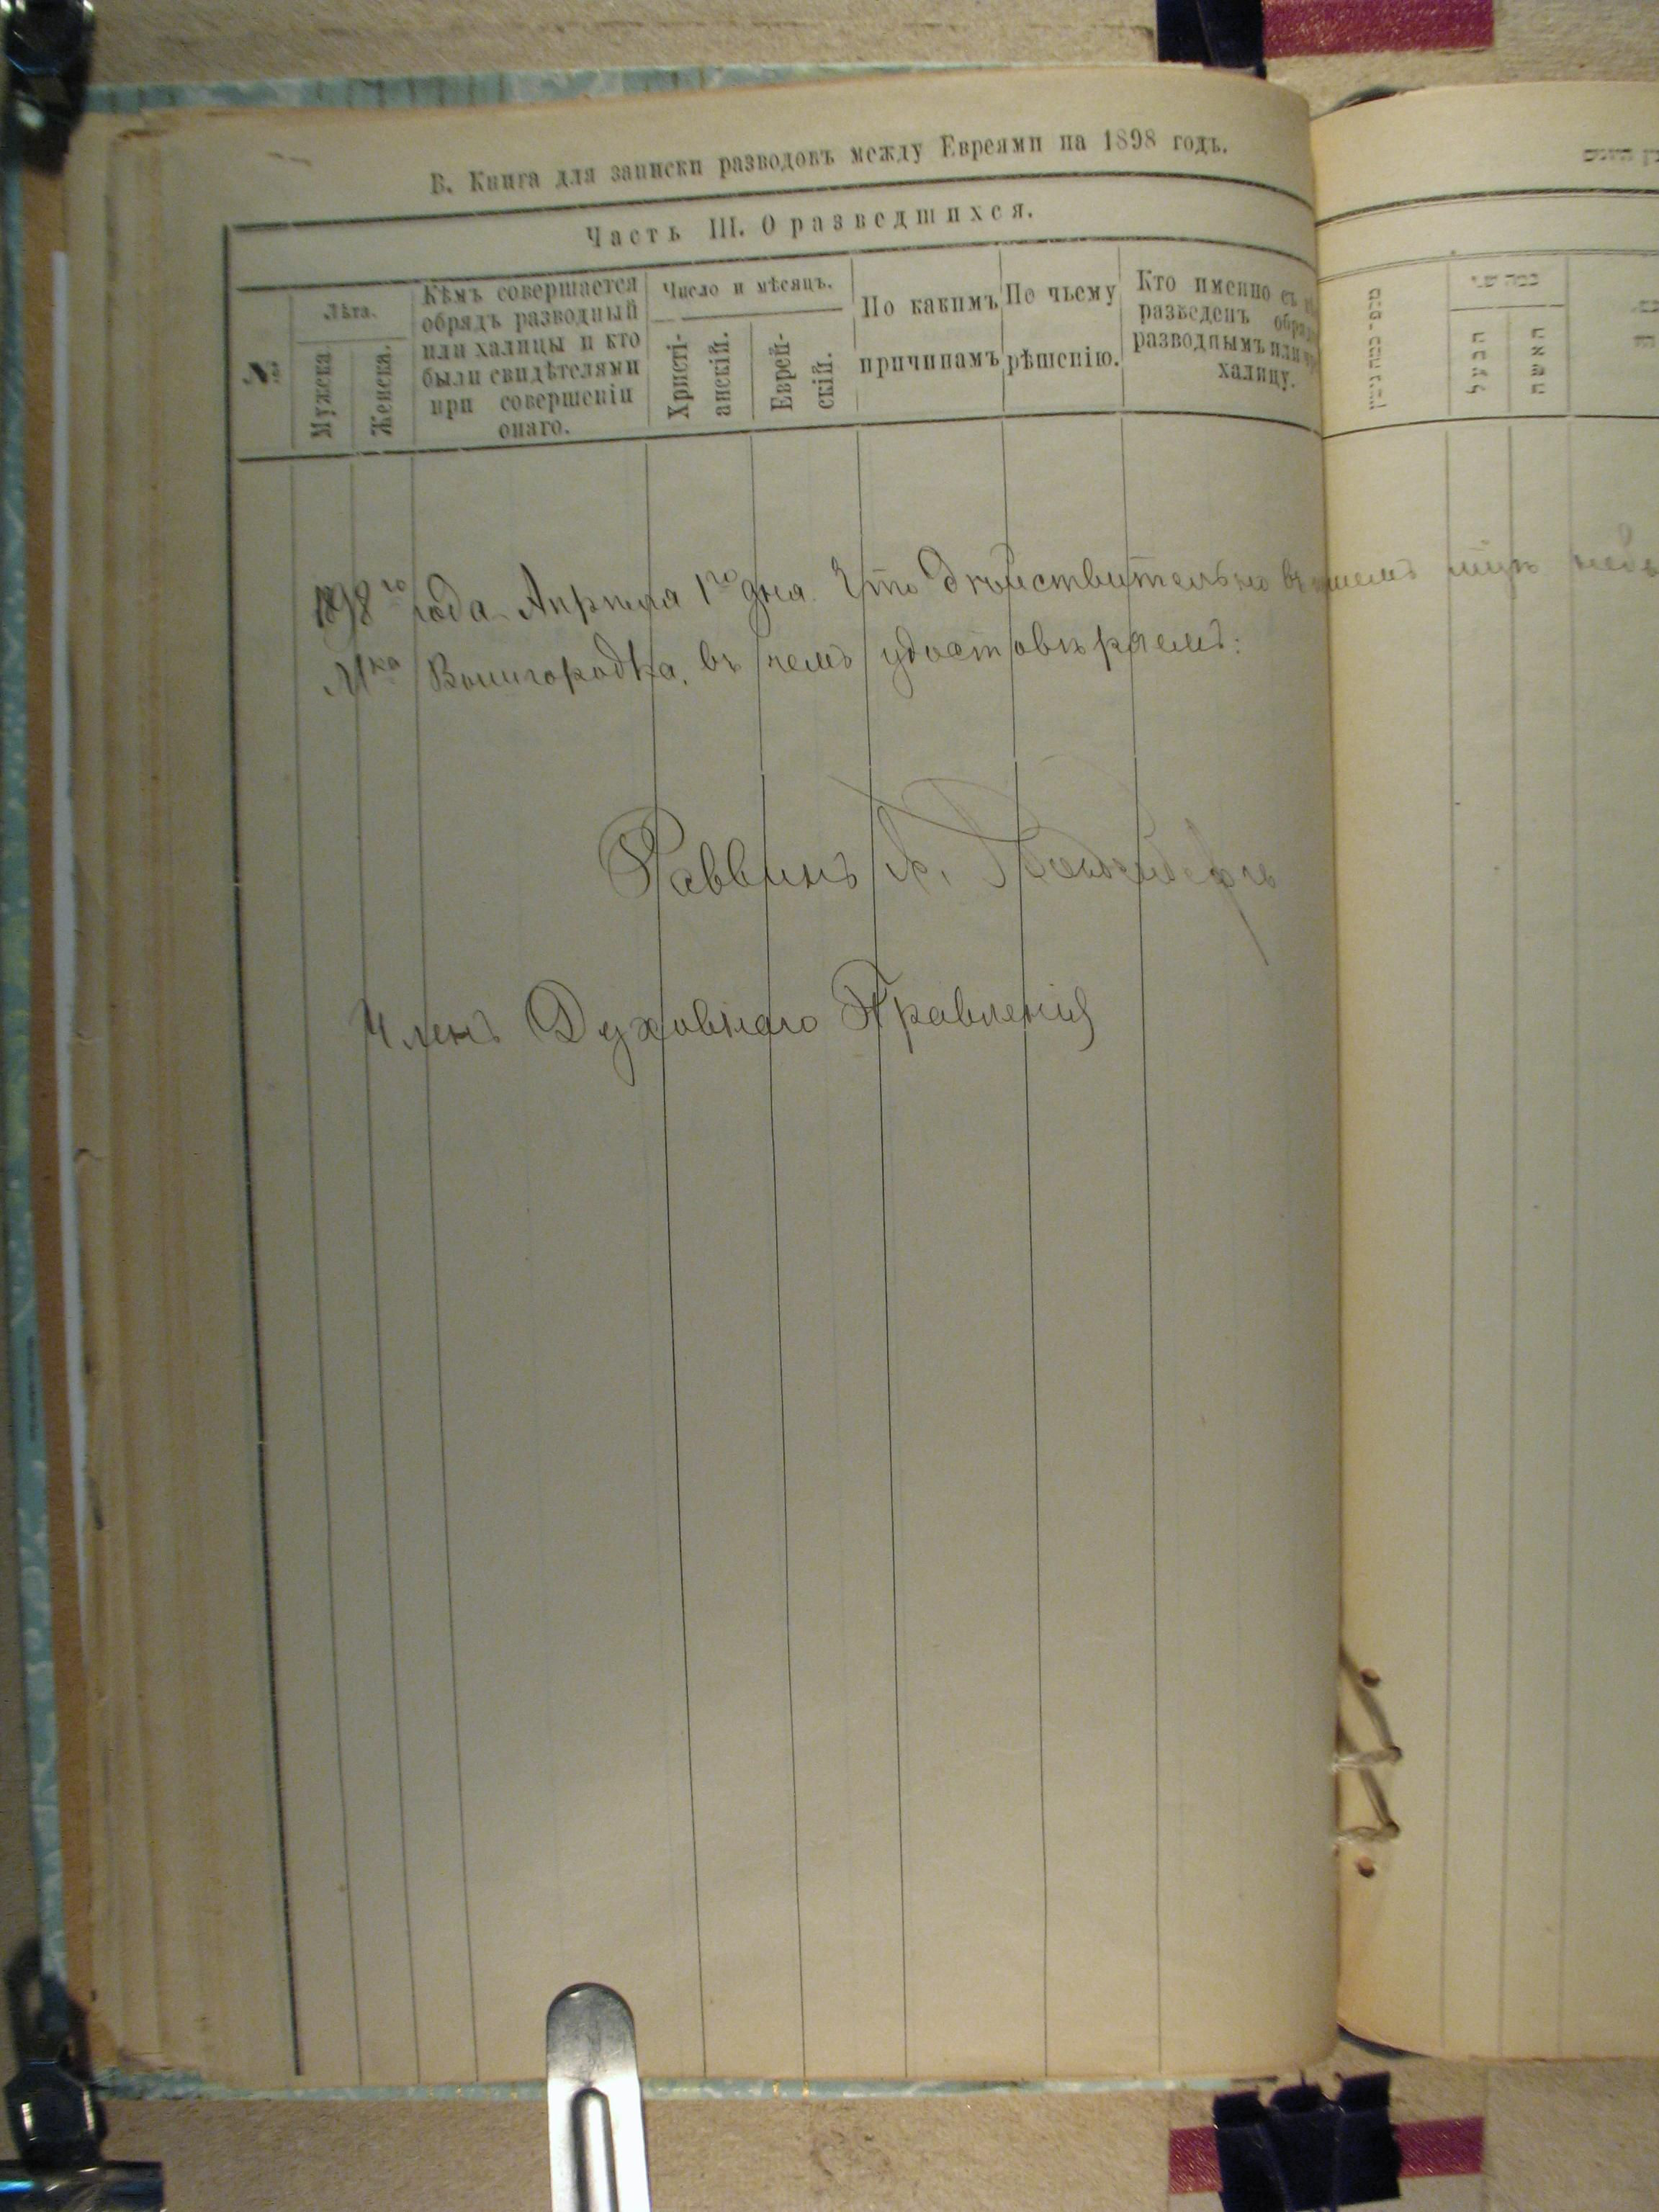 В. Книга для записки разводовъ между Евреями на 1898 годъ.
Часть III. О разведшихся.
№
Лѣта.
Мужеска.
Женска.
Кѣмъ совершается
обрядъ разводный
или халицы и кто
были свидѣтелями
при совершеніи
онаго.
Число и мѣсяцъ.
Христі-
анскій.
Еврей-
скій.
По какимъ
причинамъ
По чьему
рѣшенію.
Кто именно съ
разведенъ
разводнымъ или
халицу.
1898го года Апрѣля 1го дня. Что дѣйствительно въ
Мка Вышгородка, въ чемъ удостовѣряемъ:
Раввинъ
Членъ Духовнаго Правленія
הבעל
האשה